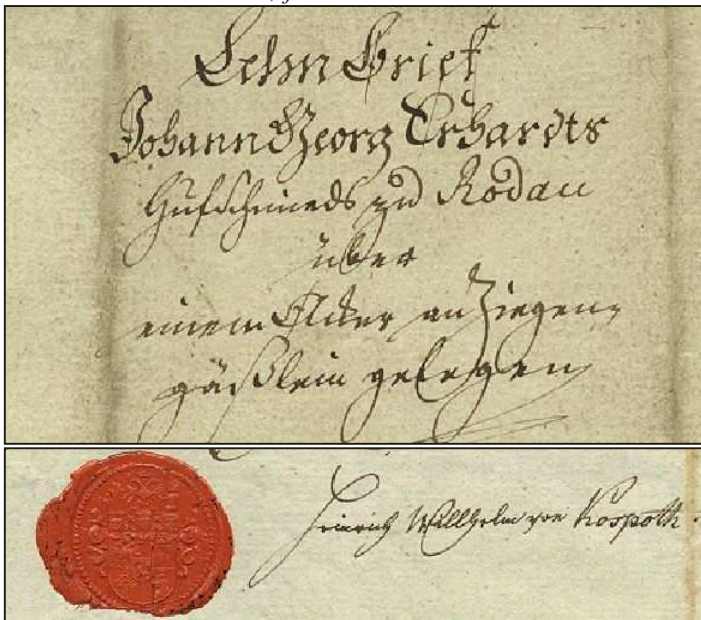 Lehn Brief
Johann Georg Erhardts
Hufschmieds zu Rodau
über
einem Acker an Ziegen-
gäßlein gelegen
Heinrich Willhelm von Kospoth.